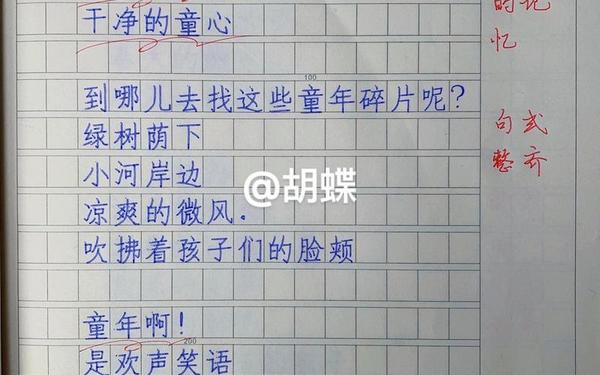 干净的童心
100
到哪儿去找这些童年碎片呢?
绿树荫下
小河岸边
凉爽的微风.
吹拂着孩子们的脸颊
童年啊!
200
是欢声笑语
的记
忆
句式
整齐
@胡蝶